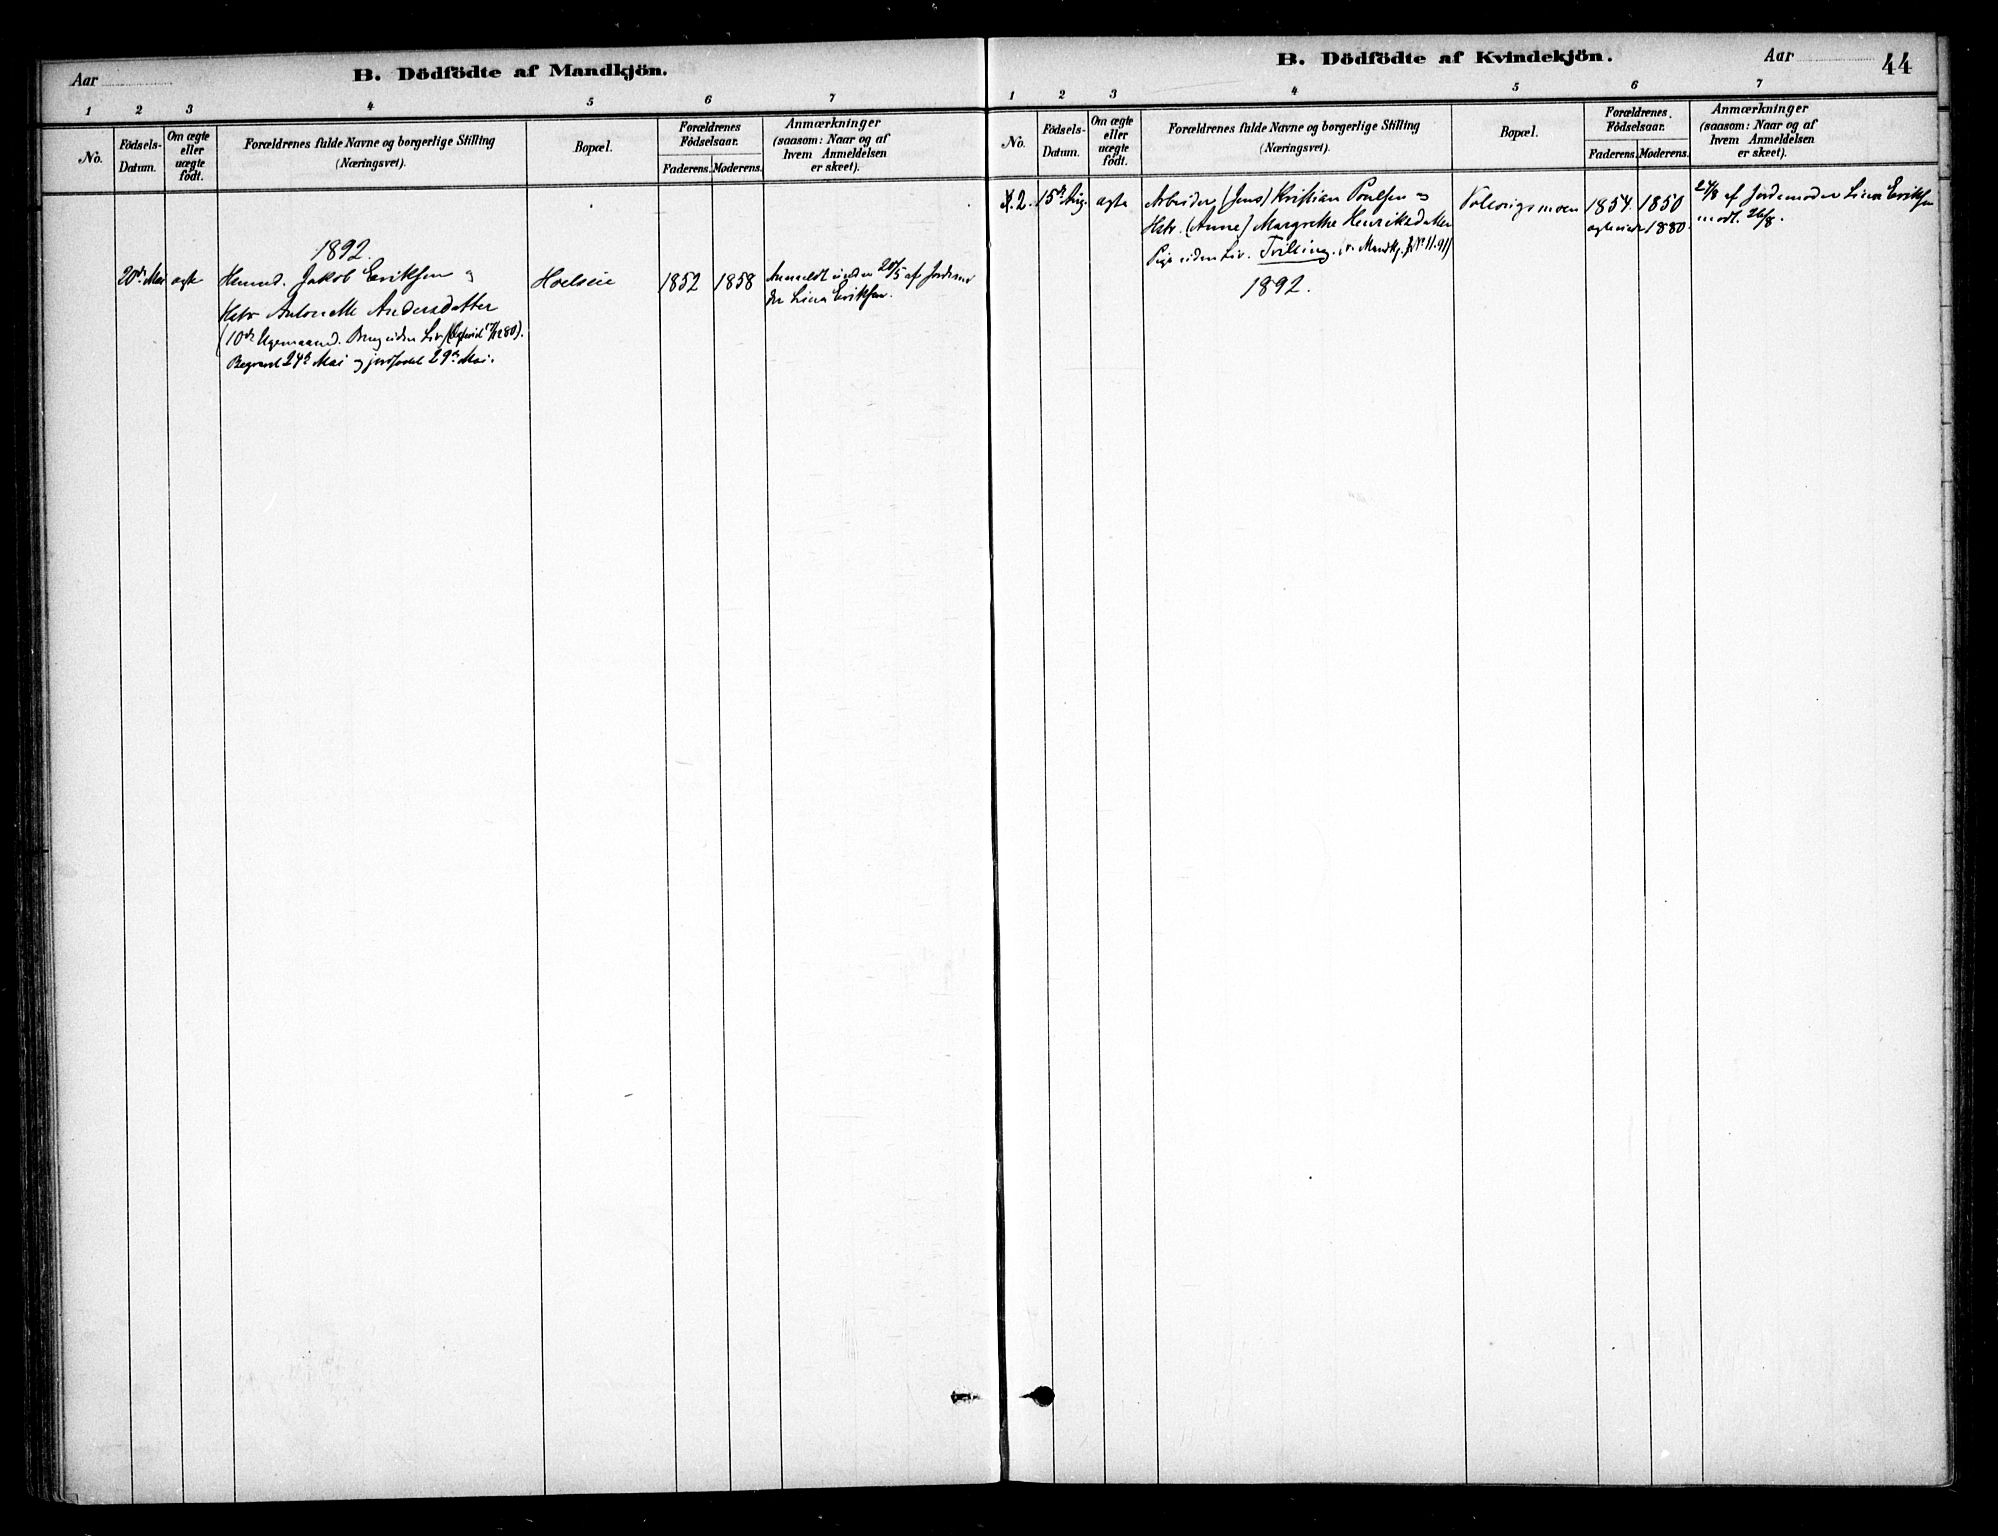 Aar
B. Dödfödte af Mandkjön.
1 2 3 4 5 6 7
No.
Födsels-
Datum.
Om ægte
eller
uægte
födt.
Forældrenes fulde Navne og borgerlige Stilling
(Næringsvei).
Bopæl.
Forældrenes
Födselsaar.
Faderens. Moderens.
Anmærkninger
(saasom: Naar og af
hvem Anmeldelsen
er skeet).
1892.
20de Mai ægte Huusmd. Jakob Eriksen og Hoelseie 1852 1858 Anmeldt inden 28/5 af Jordemo
Hstr Antonette Andersdatter der Lina Eriksen.
(10de Ugemaaned. Dreng uden Liv)
Begravet 24de Mai og jordfæstet 29de Mai.
B. Dödfödte af Kvindekjön.
Aar
44
1 2 3 4 5 6 7
No.
Födsels-
Datum.
Om ægte
eller
uægte
födt.
Forældrenes fulde Navne og borgerlige Stilling
(Næringsvei).
Bopæl.
Forældrenes
Födselsaar.
Faderens. Moderens.
Anmærkninger
(saasom: Naar og af
hvem Anmeldelsen
er skeet).
2. 15de Aug. ægte Arbeider (Jens) Kristian Poulsen og 1854 1850 24/8 af Jordemoder Lina Eriksen
Hstr. (Anne) Margrethe Henriksdatter 1880 modt. 26/8.
Pige uden Liv. Tvilling. (v. Mandkj. No 11. 91)
1892.